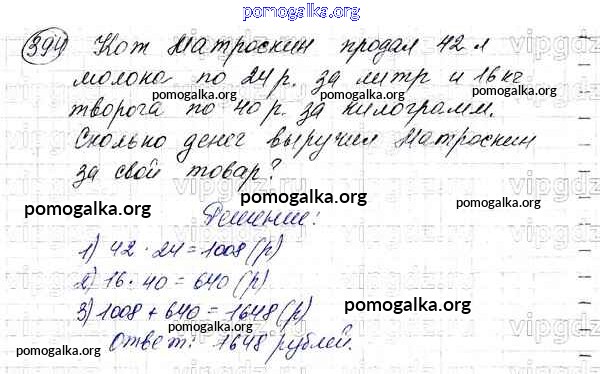 pomogalka.org
394 Кот Матроскин продал 42 л
молока по 24 р. за литр и 16 кг
pomogalka.org pomogalka.org
творога по 40 р. за килограмм.
pomogalka.org
Сколько денег выручил Матроскин
за свой товар?
pomogalka.org pomogalka.org
Решение:
1) 42 · 24 = 1008 (р)
pomogalka.org
2) 16 · 40 = 640 (р)
pomogalka.org
3) 1008 + 640 = 1648 (р)
pomogalka.org
pomogalka.org
Ответ: 1648 рублей.
pomogalka.org
pomogalka.org